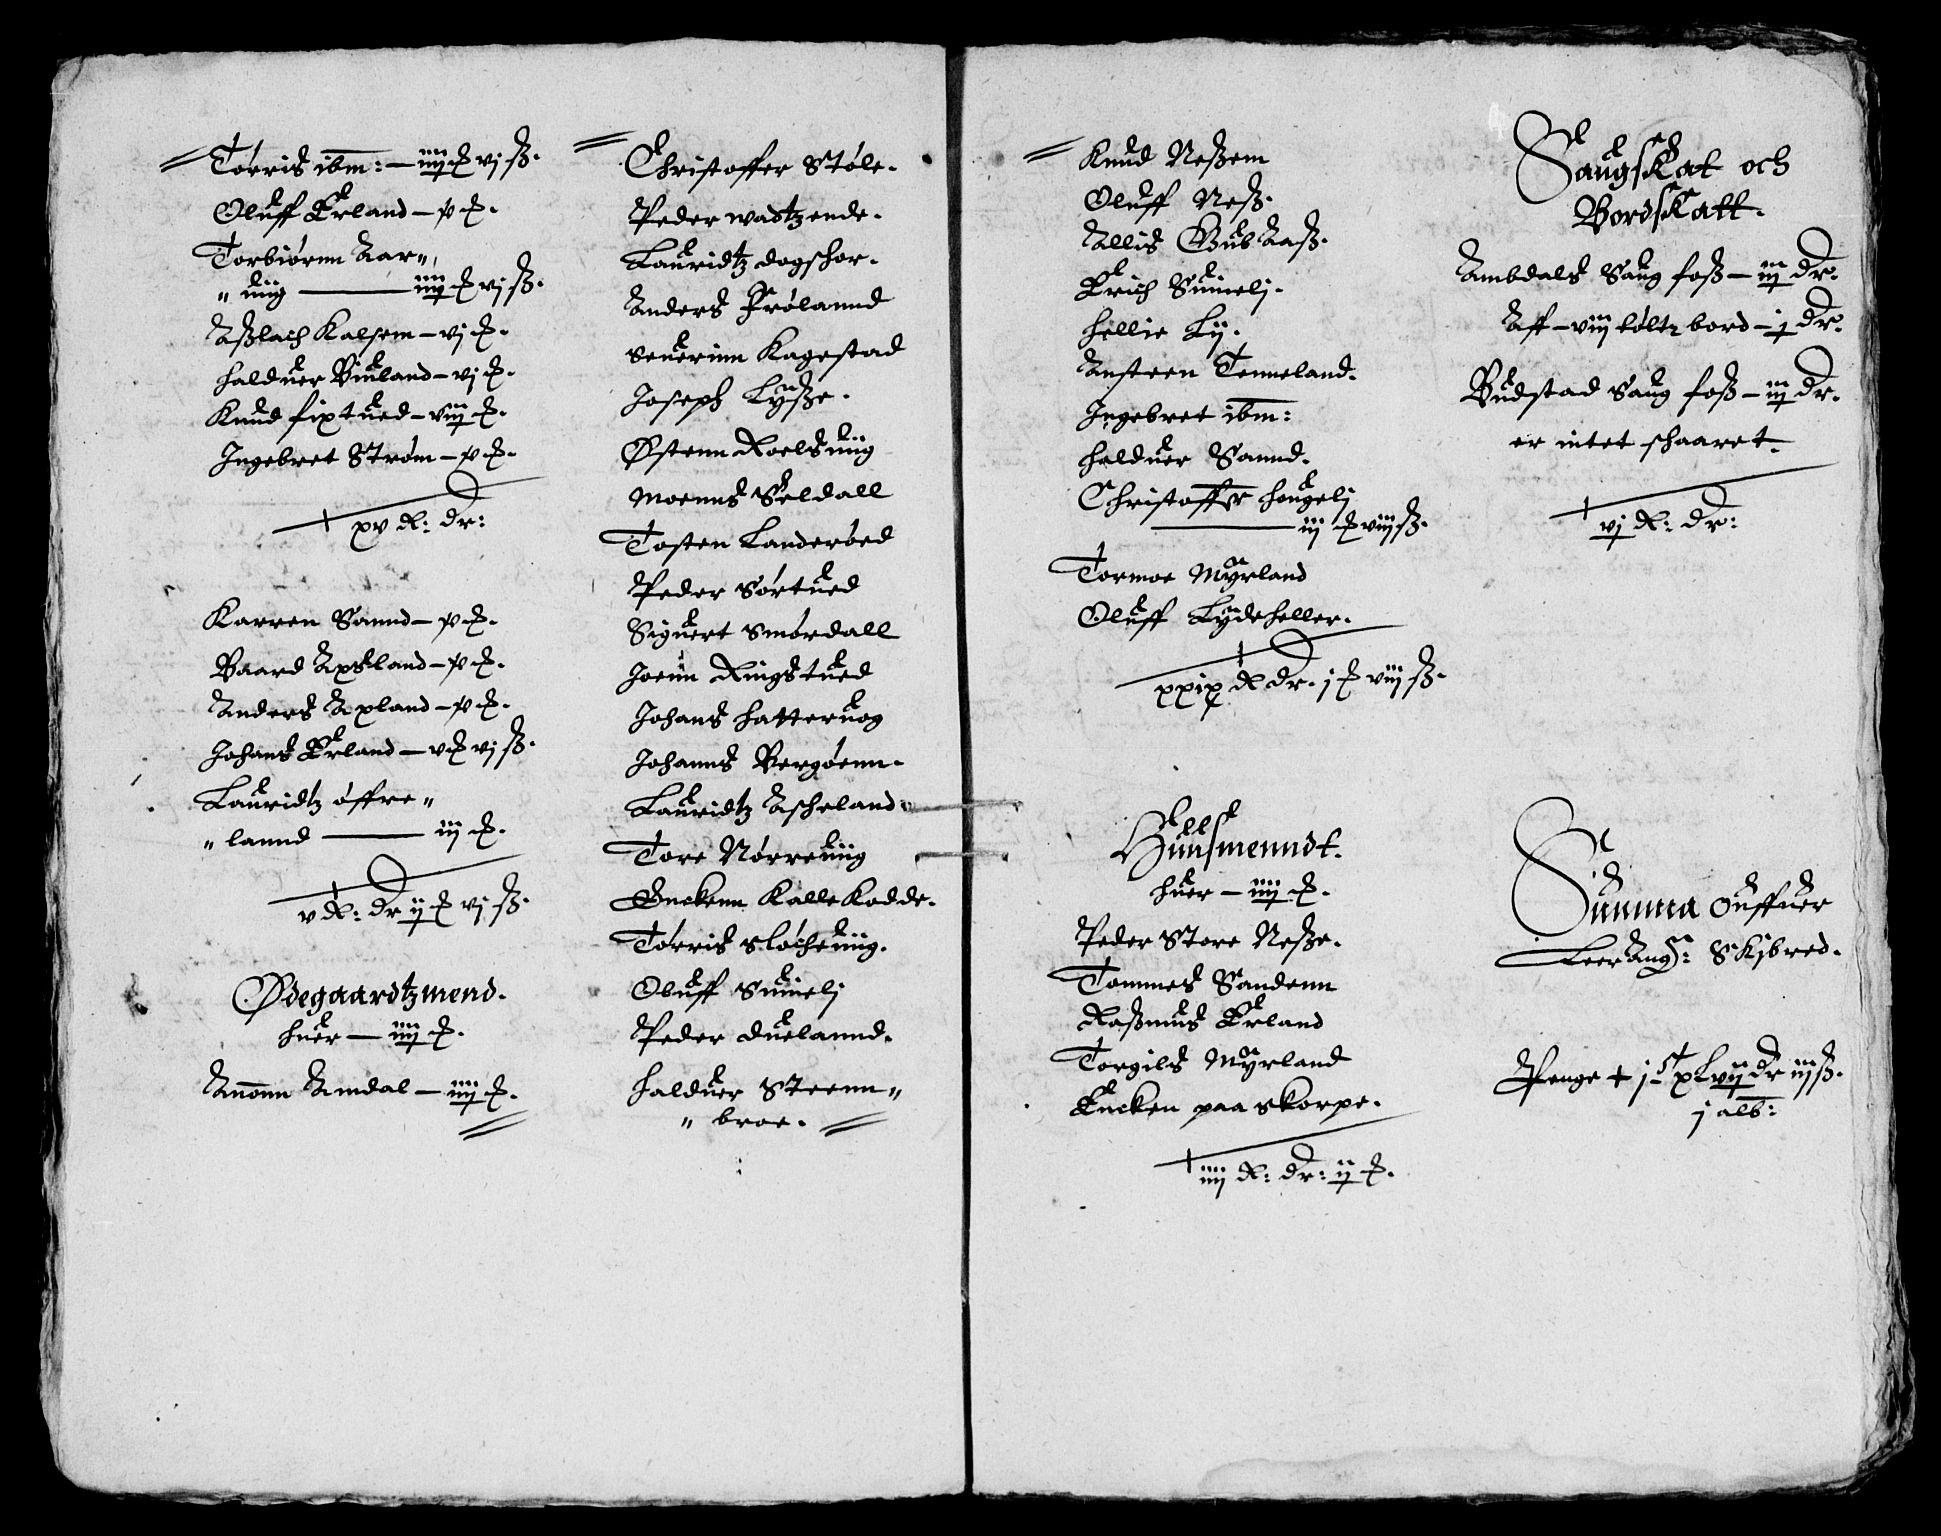 Tørris ibm: – iiij ʒ vj ß.
Oluff Erland – p ʒ.
Torbiørnn Aar„
„ uiig — iiij ʒ vj ß.
Aßlach Kalsem – vj ʒ.
Halduer Biuland – vj ʒ.
Knud fixtued – viij ʒ.
Ingebret Strøm – p ʒ.
xv R: dr:
Karren Sannd – p ʒ.
Baard Axsland – p ʒ.
Anders Axland – p ʒ.
Johans Erland – v ʒ vj ß.
Lauridtz øffre„
„ lannd — iij ʒ.
v R: dr ij ʒ vj ß.
Ødegaardtzmend.
huer – iiij ʒ.
Anonn Amdal – iiij ʒ.
Christoffer Støle.
Peder wadtzende.
Lauridtz dogshor.
Anders Frølannd
Seuerinn Kagestad
Joseph Lyßze.
Østenn Roelsuiig
Moenns Seldall
Tosten Landerøed
Peder Sørtued
Siguert Smørdall
Joenn Ringstued
Johans Hatteruog
Johanns Bergøenn.
Lauridtz Ascheland.
Tore Nørreuiig
Enckenn Kalle Kodde.
Tørris Slocheuiig.
Oluff Suinelj
Peder Duelannd.
Halduer Steenn„
„ broe.
Knud Neßem
Oluff Neß.
Allis Gubaaß.
Erich Suinelj.
Hellie Lij.
Ansteen Tenneland.
Ingebret ibm:
Halduer Sannd.
Christoffer Hougelj
— iij ʒ viij ß.
Tormoe Myrland
Oluff Lydeheller.
xxix R dr. j ʒ viij ß.
Huusmenndt.
huer – iiij ʒ.
Peder Store Neße.
Tommes Sandenn
Raßmus Erland
Torgils Myrland
Encken paa Skorpe.
iiij R: dr: ij ʒ.
Saugskat och
Bordskatt.
Ambdals Saug foß – iij dr.
Aff – viij tølt bord – j dr.
Budstad Saug foß – iij dr.
er intet schaaret.
vj R: dr:
Summa ouffuer
Leerang: Skibred.
Penge + j C xlvij dr iij ß.
j alb: